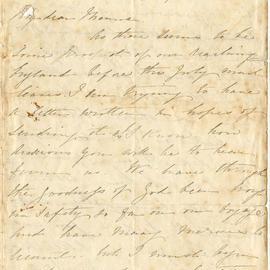 My dear Mamma
As there seems to be
some prospect of our reaching
England before the mail
leaves I am trying to have
a letter written in hopes of
sending it as I know how
anxious you will be to hear
from us We have through
the goodness of God been kept
in safety so far on our voyage
and have many mercies to
recount but I must begin